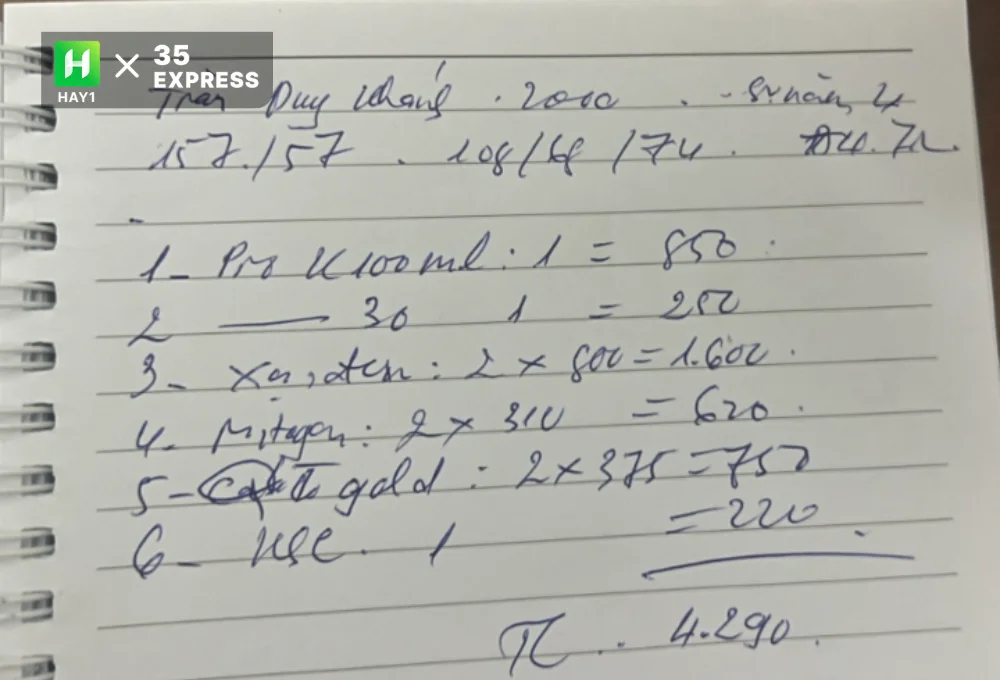 HAY1 × 35 EXPRESS
Trần Duy Khánh . 2000 . -
157/57 . 108/68 /74 .
1- Pro K100ml : 1 = 850
2 —— 30 1 = 250
3- : 2 × 800 = 1.600 .
4- Mitagen : 2 × 310 = 620 .
5- gold : 2 × 375 = 750
6- 1 = 220
4.290 .